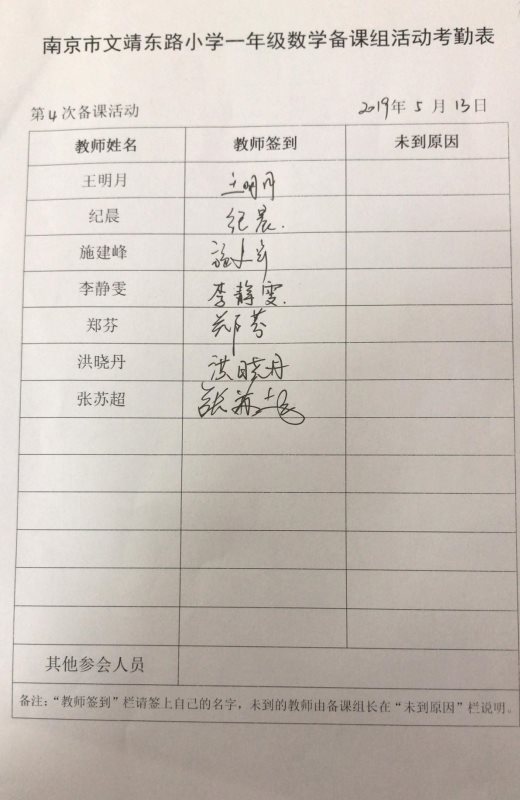 南京市文靖东路小学一年级数学备课组活动考勤表
第4次备课活动 2019年5月13日
教师姓名 教师签到 未到原因
王明月 王明月
纪晨 纪晨.
施建峰 施建峰
李静雯 李静雯.
郑芬 郑芬
洪晓丹 洪晓丹
张苏超 张苏超
其他参会人员
备注:“教师签到”栏请签上自己的名字，未到的教师由备课组长在“未到原因”栏说明。